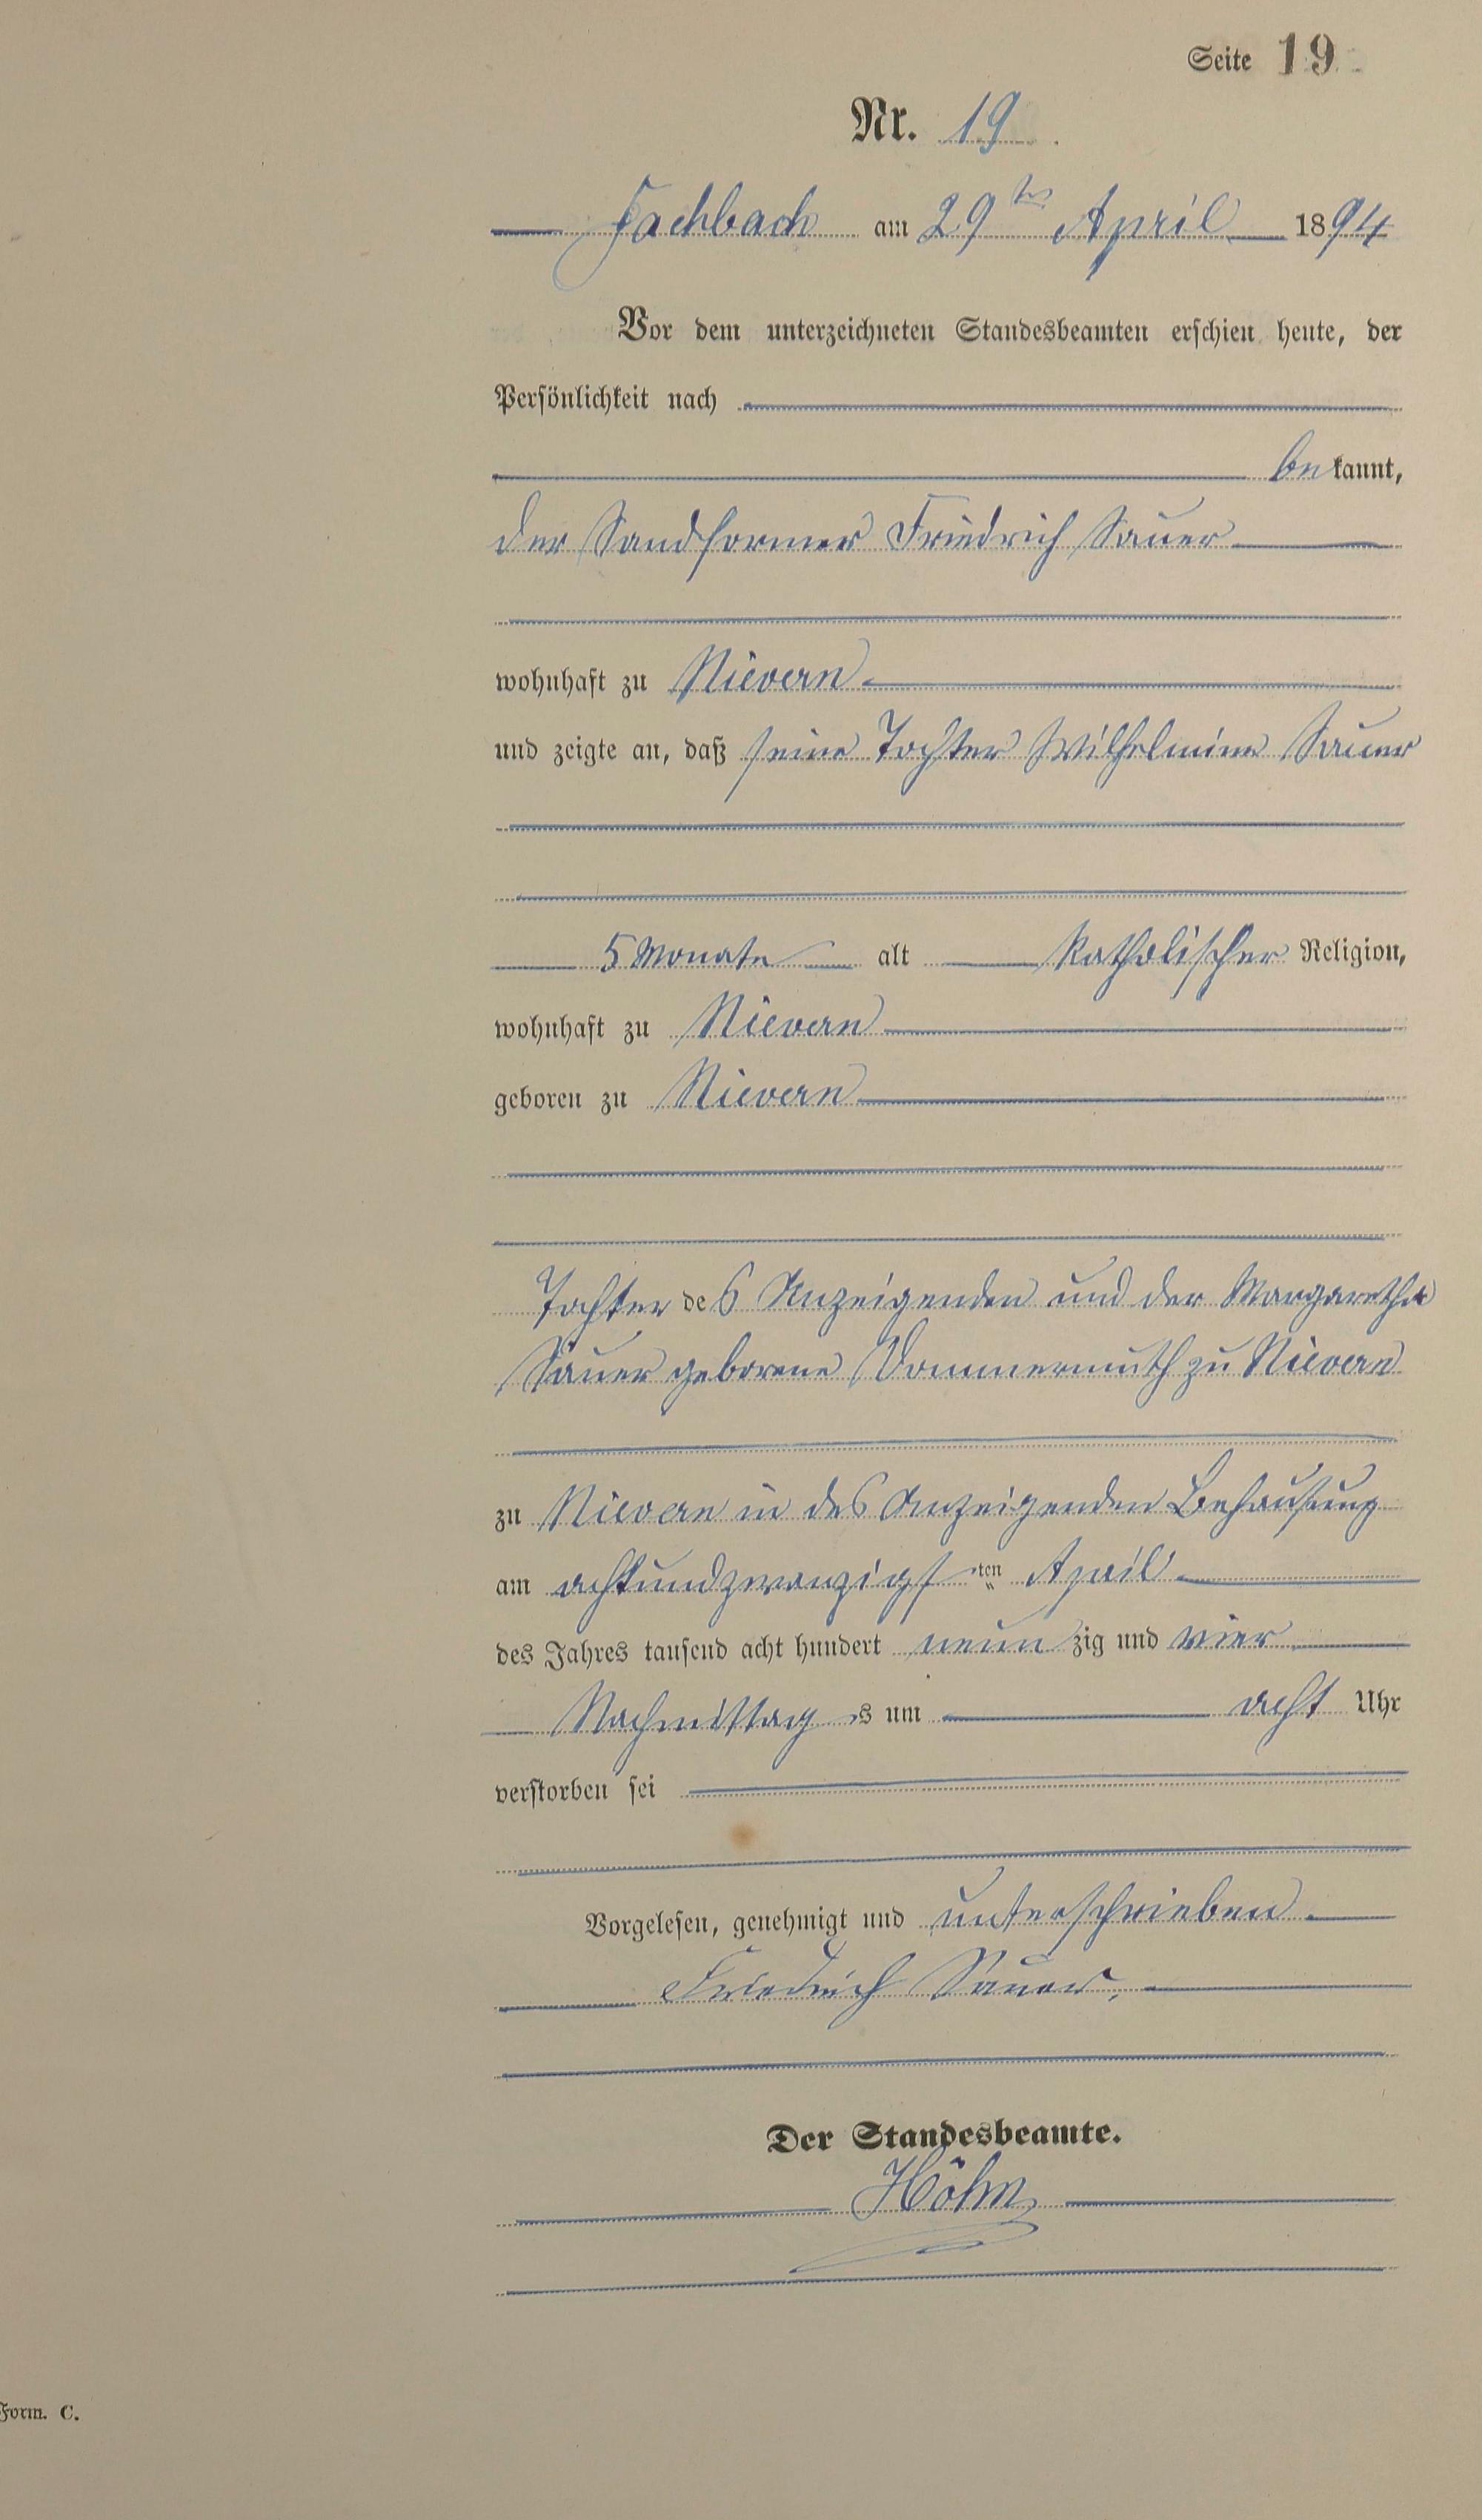 Seite 19
Nr. 19
Fachbach am 29ten April 1894
Vor dem unterzeichneten Standesbeamten erschien heute, der
Persönlichkeit nach
bekannt,
der Sandformer Friedrich Sauer
wohnhaft zu Nievern
und zeigte an, daß seine Tochter Wilhelmine Sauer
5 Monate alt katholischer Religion,
wohnhaft zu Nievern
geboren zu Nievern
Tochter des Anzeigenden und der Margaretha
Sauer geborene Dommermuth zu Nievern
zu Nievern in des Anzeigenden Behausung
am achtundzwanzigsten April
des Jahres tausend acht hundert neunzig und vier
Nachmittags um acht Uhr
verstorben sei
Vorgelesen, genehmigt und unterschrieben
Friedrich Sauer.
Der Standesbeamte.
Höhn
Form. C.